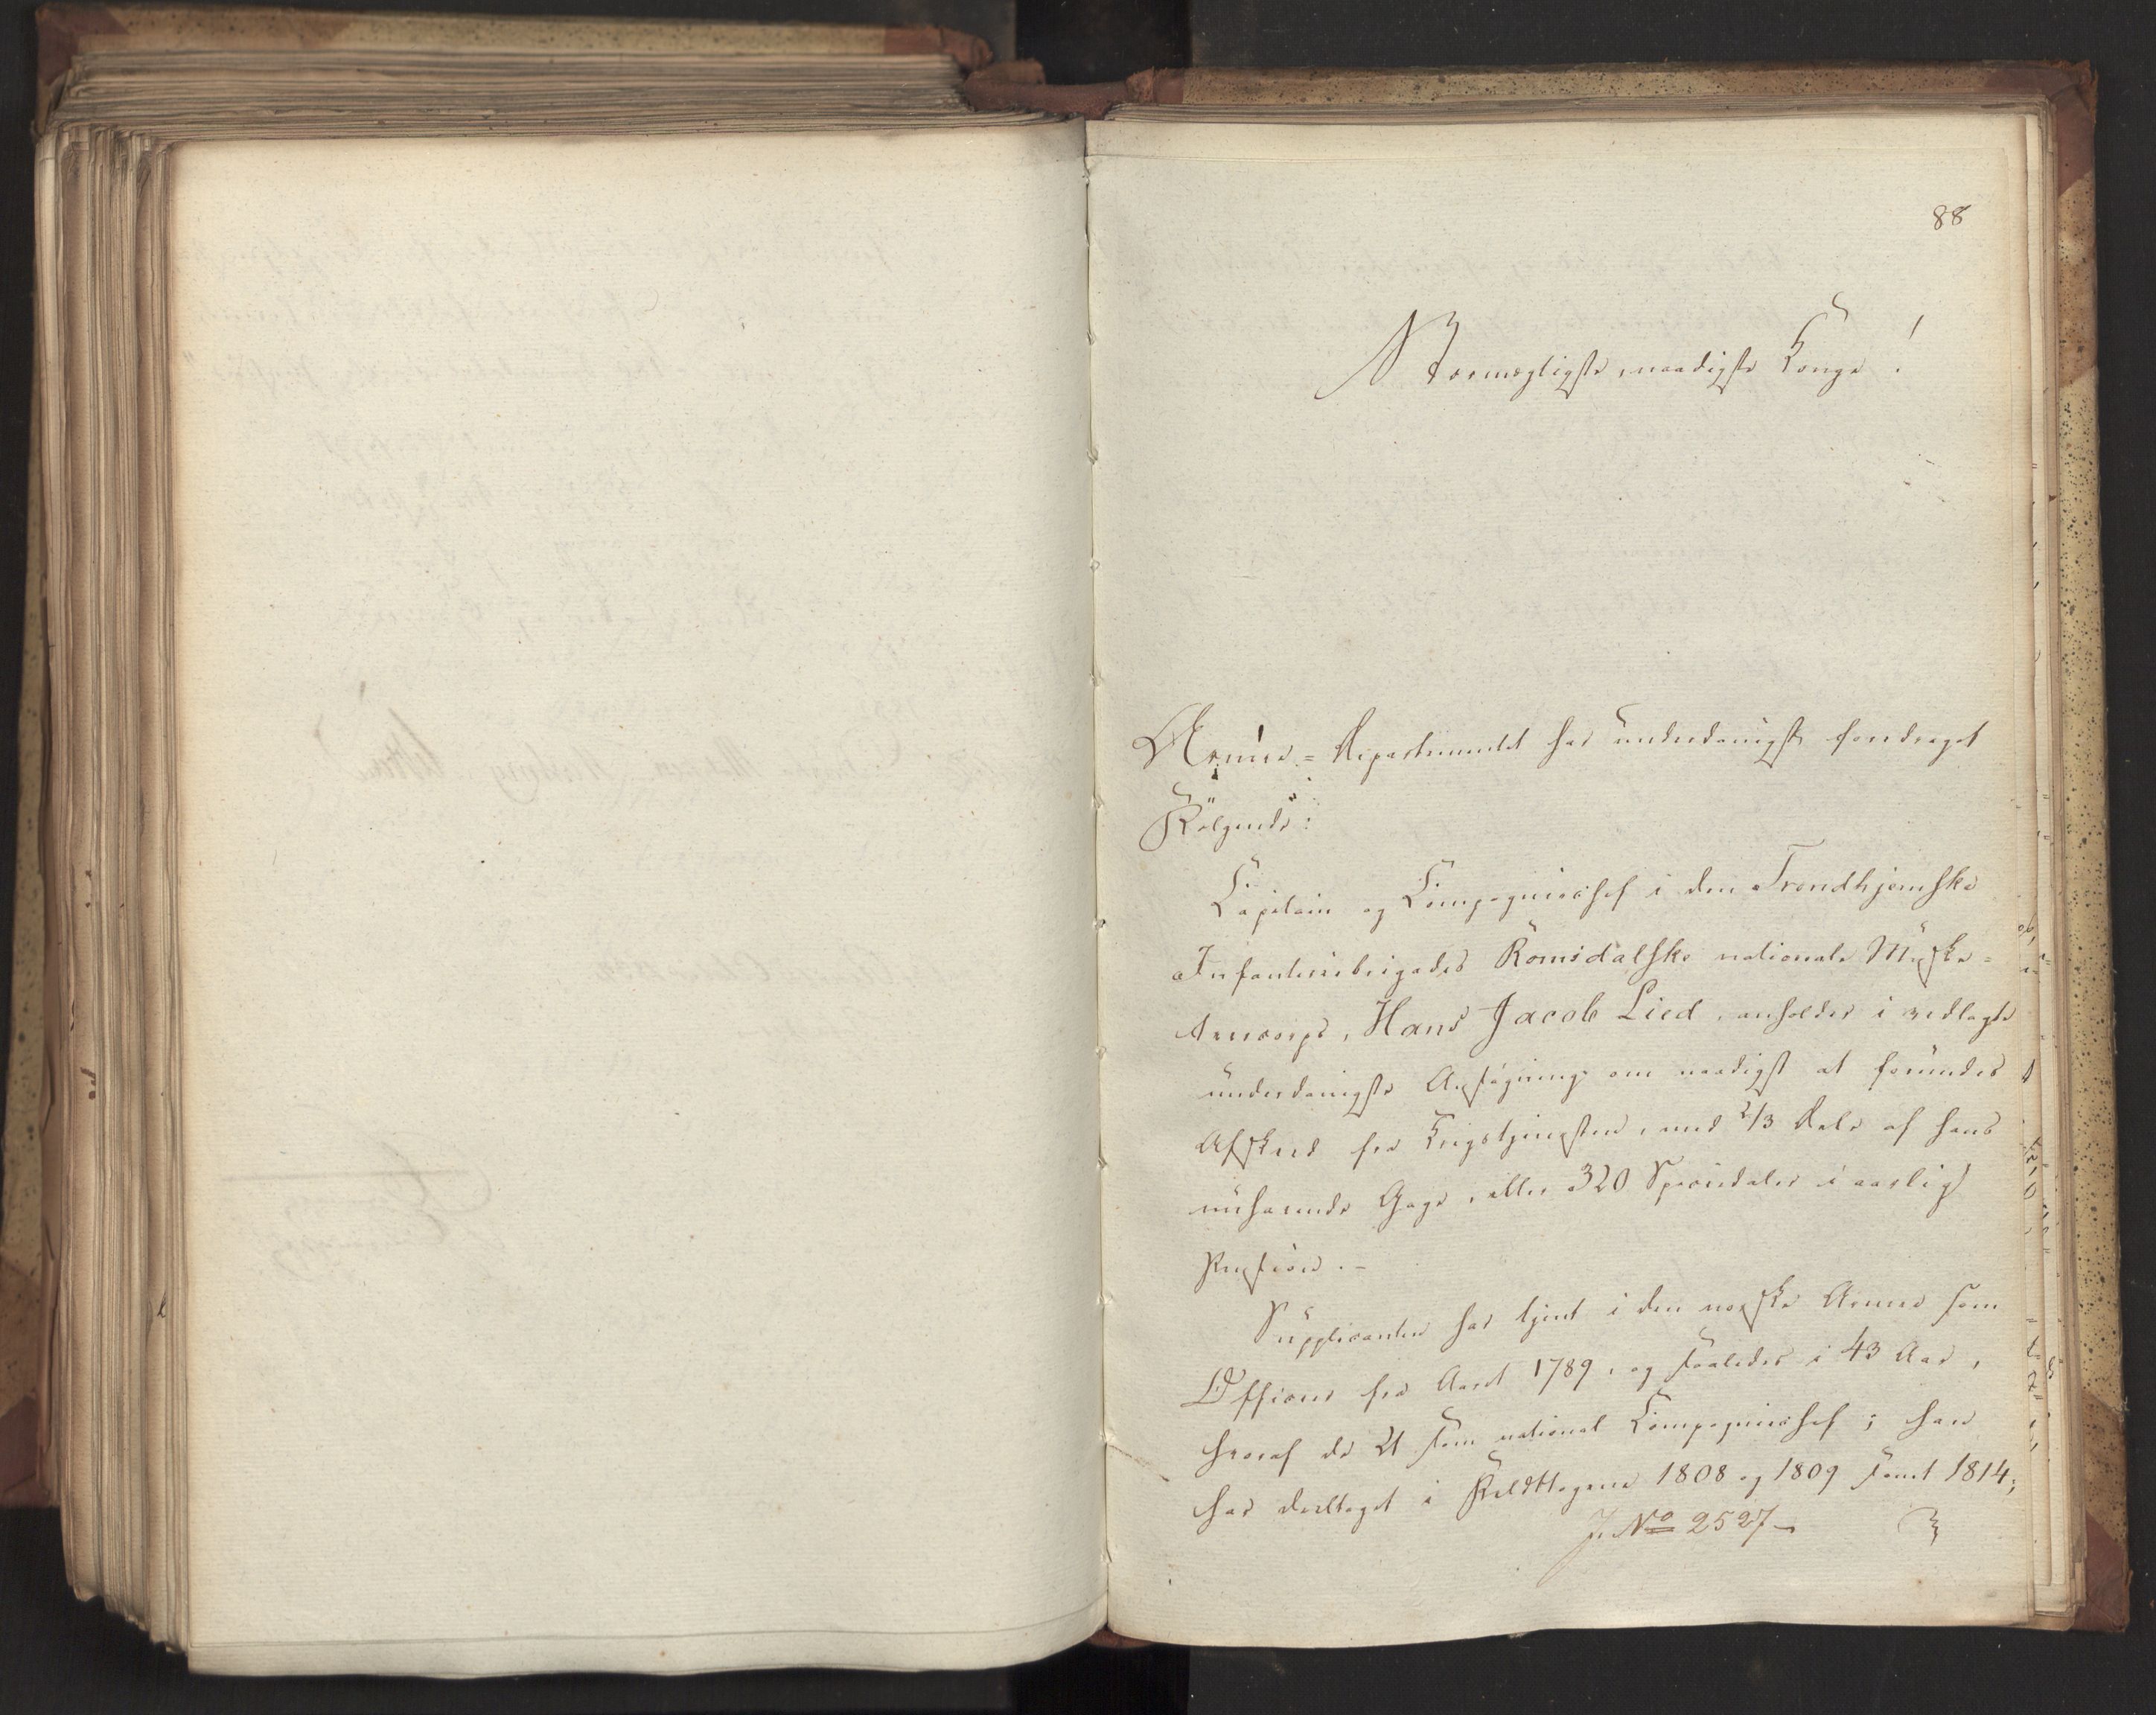 88
Stormægtigste, naadigste Konge!
Armee=Departementet har underdanigst foredraget
Følgende:
Capitain og Compagniechef i den Trondhjemske
Infanteriebrigades Romsdalske nationale Muske=
teercorps, Hans Jacob Lied, anholder i vedlagte
underdanigste Ansøgning om naadigst at forundes
Afskeed fra Krigstjenesten, med 2/3 Dele af hans
nuhavende Gage, eller 320 Speciedaler i aarlig
Pension.-
Supplicanten har tjent i den norske Armee som
Officeer fra Aaret 1789, og saaledes i 43 Aar,
hvoraf de 21 som national Compagniechef; han
har deeltaget i Feldttogene 1808 og 1809 samt 1814;
J. No 2527-